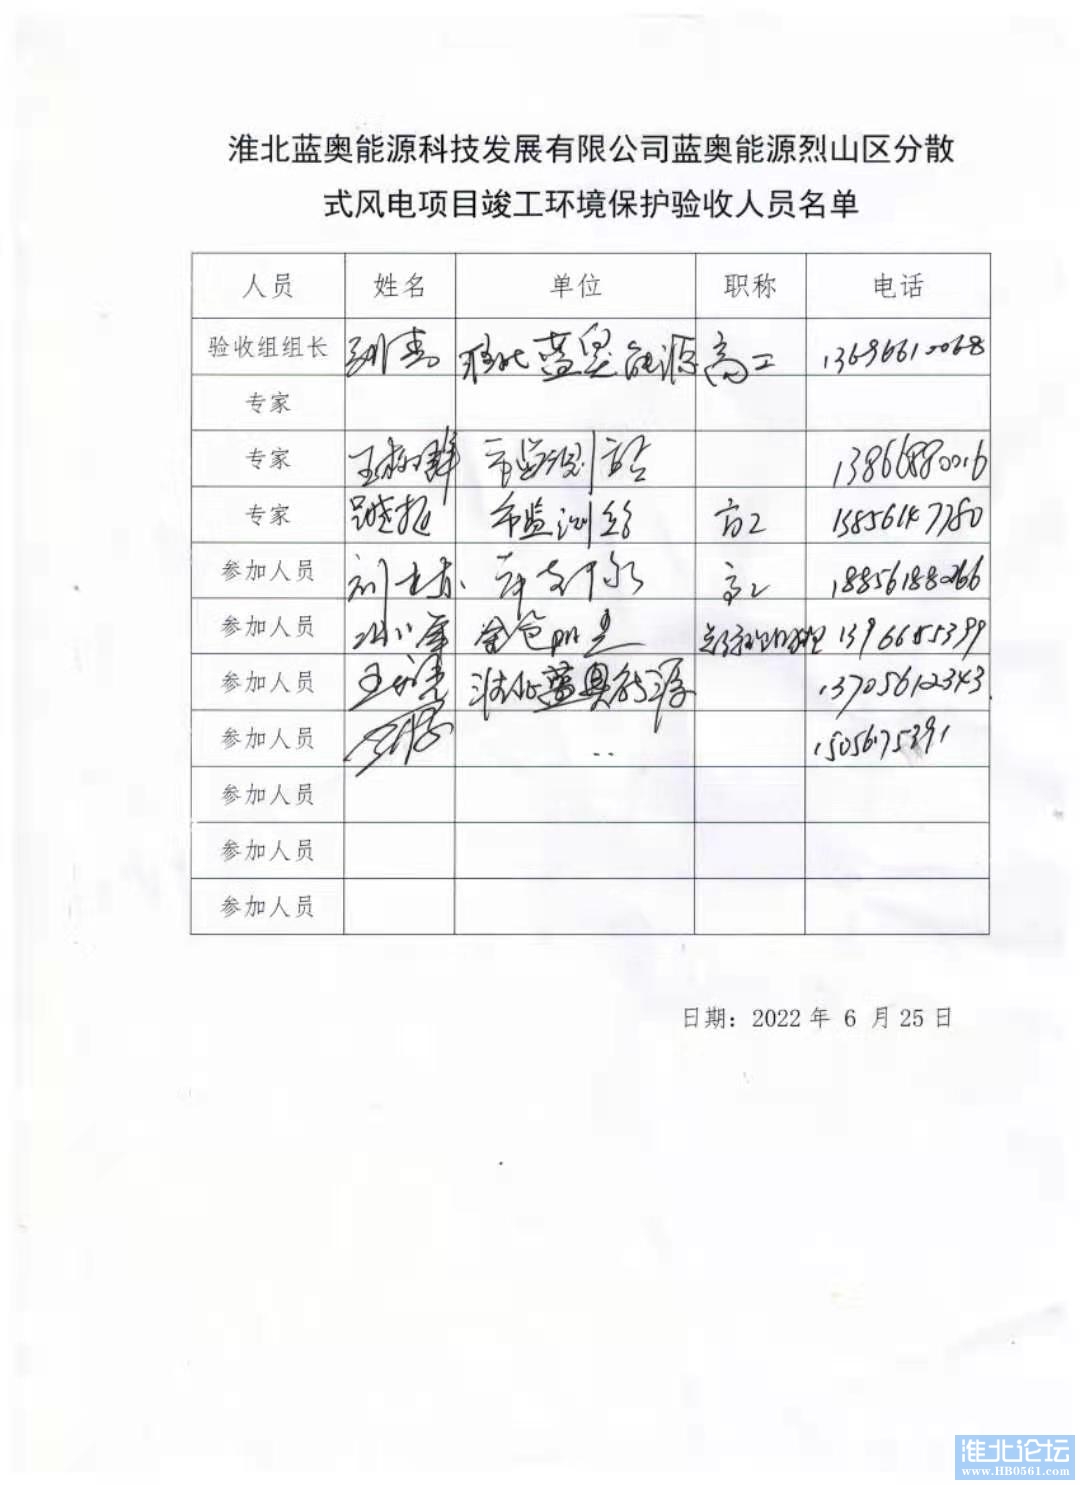 淮北蓝奥能源科技发展有限公司蓝奥能源烈山区分散
式风电项目竣工环境保护验收人员名单
人员 姓名 单位 职称 电话
验收组组长 淮北蓝奥能源 高工 13696610068
专家
专家 市监测站 13866880016
专家 市监测 高工 15856147780
参加人员 高工 18856188066
参加人员 13966855399
参加人员 淮北蓝奥能源 13705612343
参加人员 .. 15056175391
参加人员
参加人员
参加人员
日期：2022 年 6 月 25 日
淮北论坛
www.HB0561.com